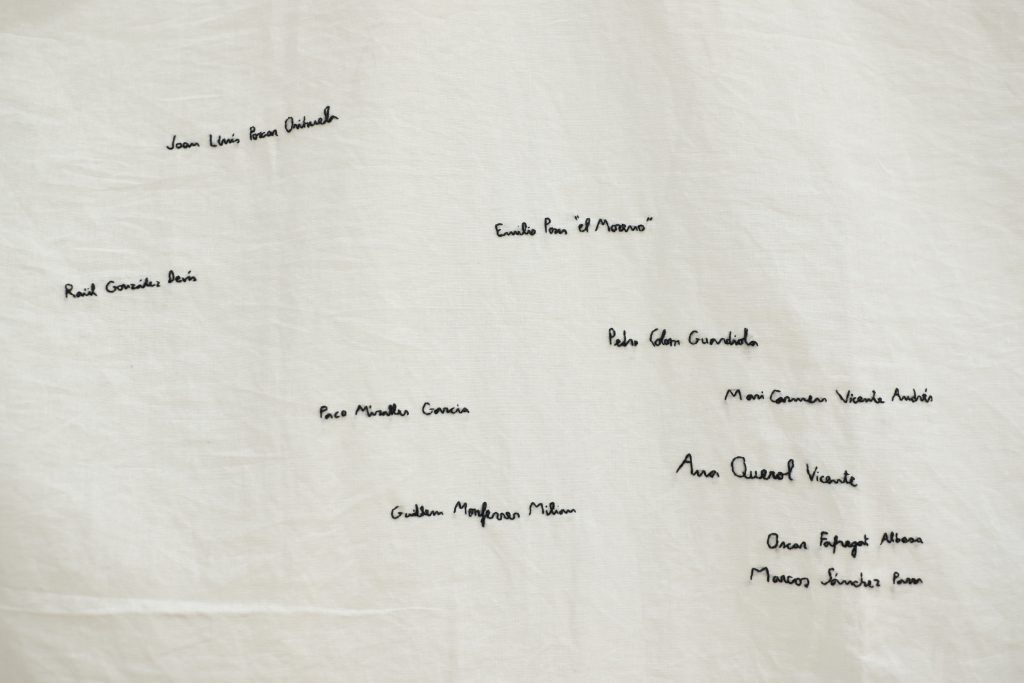 Joan Lluís Porcar Orihuela
Emilio "el Moreno"
Raül González Devís
Pedro Colom Guardiola
Mari Carmen Vicente Andrés
Paco Miralles García
Ana Querol Vicente
Guillem Monferrer Milian
Oscar Fafregat
Marcos Sánchez